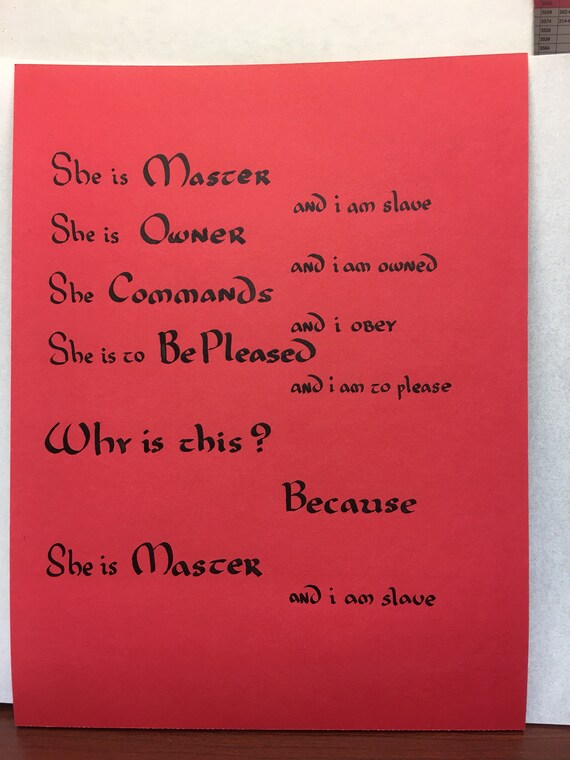 She is Master
and i am slave
She is Owner
and i am owned
She Commands
and i obey
She is to Be Pleased
and i am to please
Why is this?
Because
She is Master
and i am slave